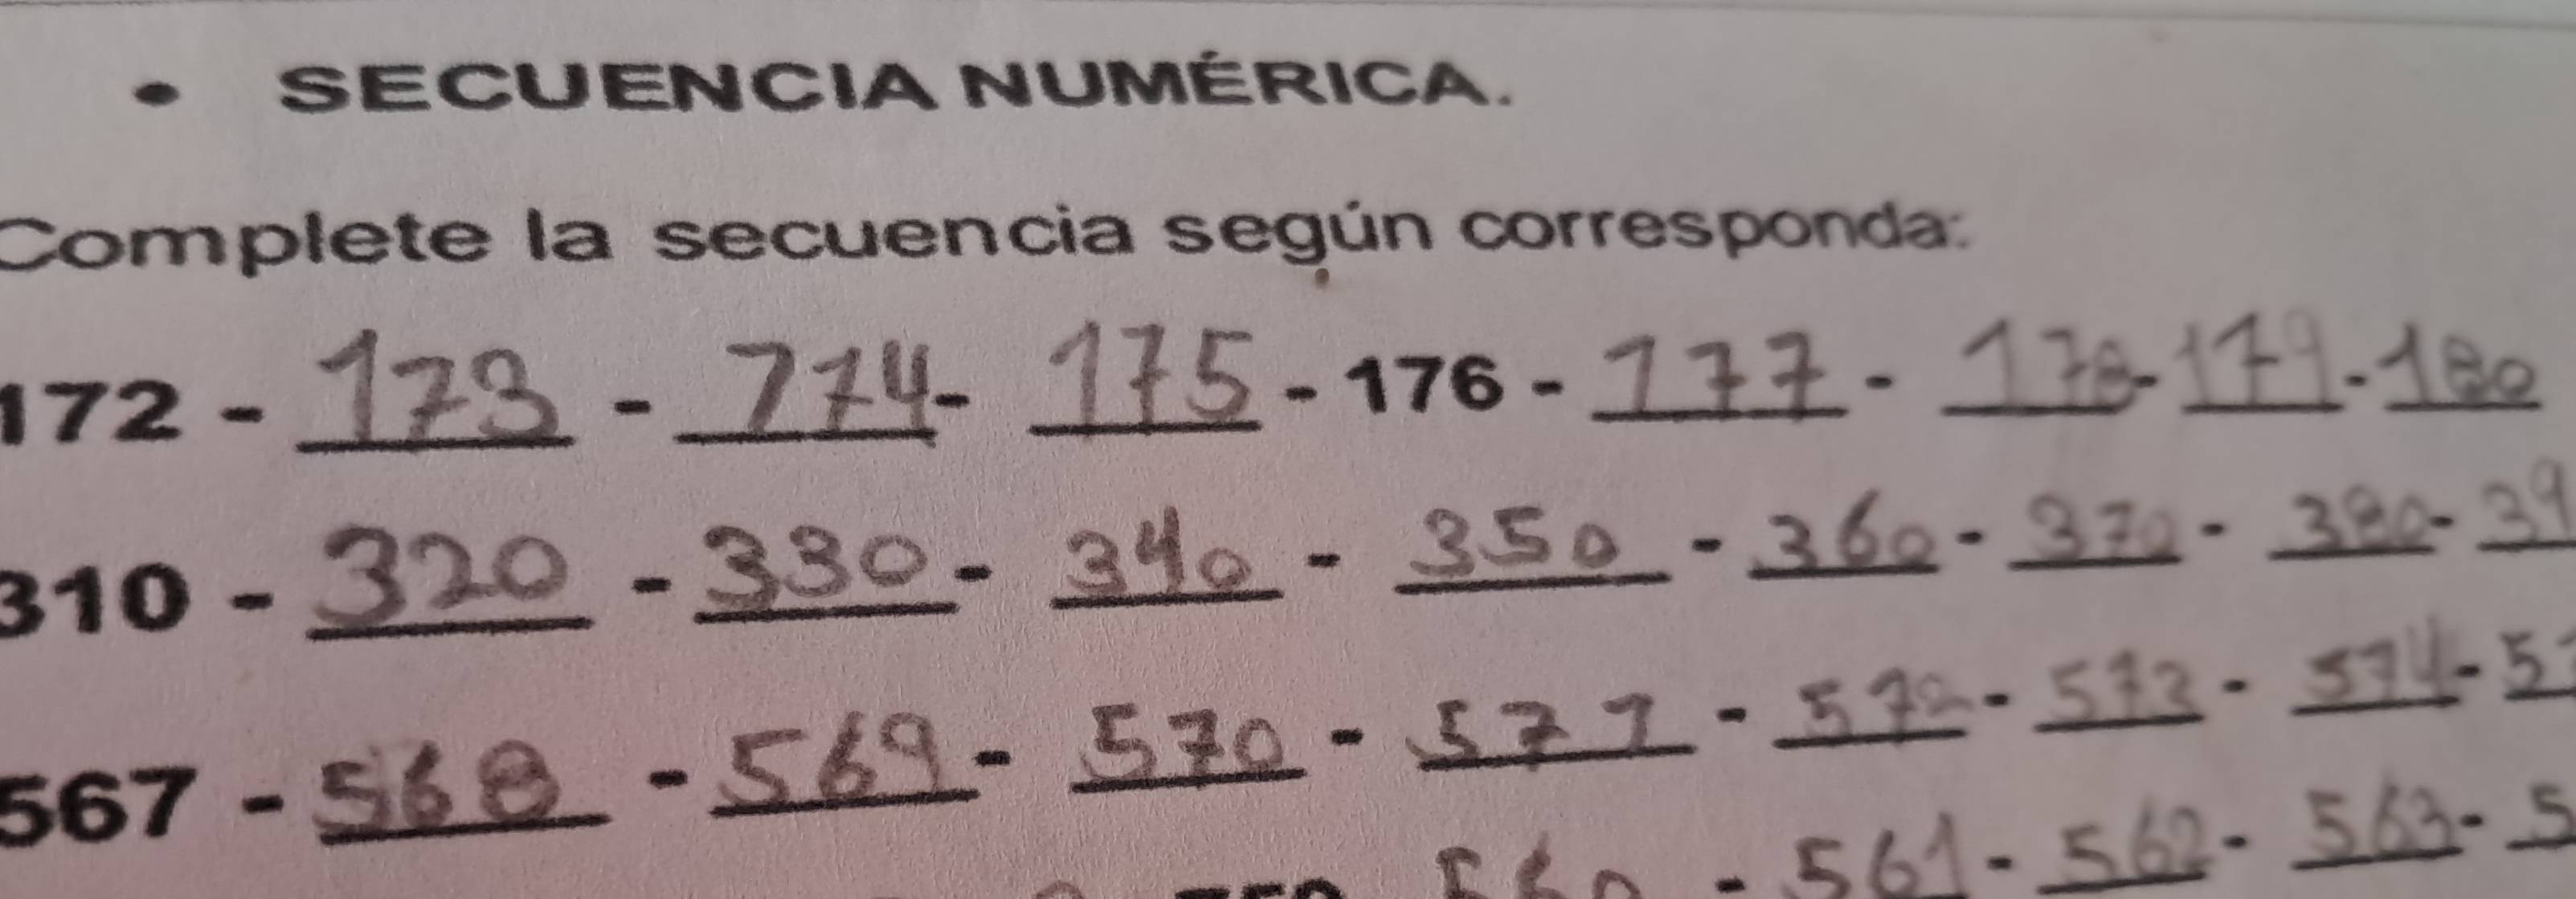 • SECUENCIA NUMÉRICA.
Complete la secuencia según corresponda:
172 - 173 - 174 - 175 - 176 - 177 - 178 - 179 - 180
310 - 320 - 330 - 340 - 350 - 360 - 370 - 380 - 39
567 - 568 - 569 - 570 - 571 - 572 - 573 - 574 - 57
560 - 561 - 562 - 563 - 5